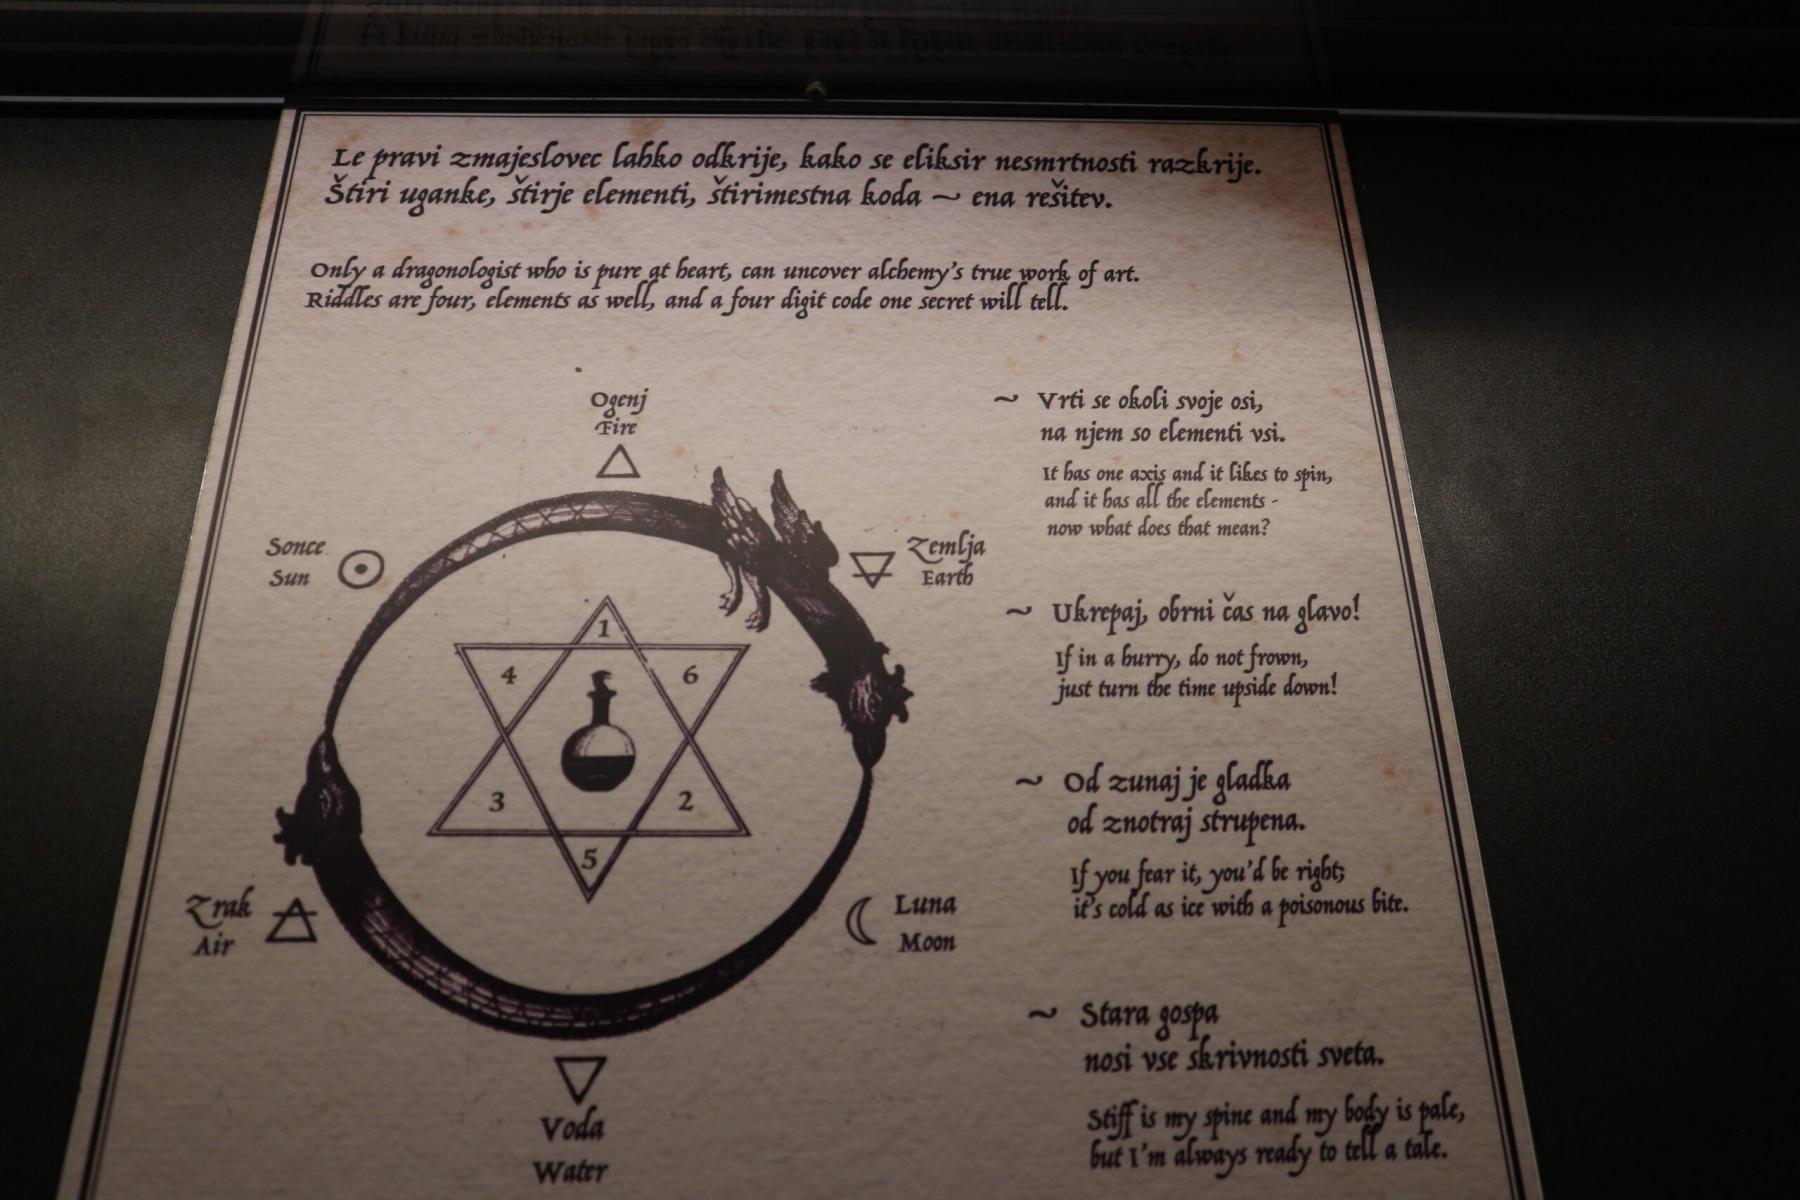 Le pravi zmajeslovec lahko odkrije, kako se eliksir nesmrtnosti razkrije.
Štiri uganke, štirje elementi, štirimestna koda ~ ena rešitev.
Only a dragonologist who is pure at heart, can uncover alchemy's true work of art.
Riddles are four, elements as well, and a four digit code one secret will tell.
Ogenj
Fire
Sonce
Sun
Zemlja
Earth
1
4
6
3
2
5
Zrak
Air
Luna
Moon
Voda
Water
~ Vrti se okoli svoje osi,
na njem so elementi vsi.
It has one axis and it likes to spin,
and it has all the elements -
now what does that mean?
~ Ukrepaj, obrni čas na glavo!
If in a hurry, do not frown,
just turn the time upside down!
~ Od zunaj je gladka
od znotraj strupena.
If you fear it, you'd be right;
it's cold as ice with a poisonous bite.
~ Stara gospa
nosi vse skrivnosti sveta.
Stiff is my spine and my body is pale,
but I'm always ready to tell a tale.